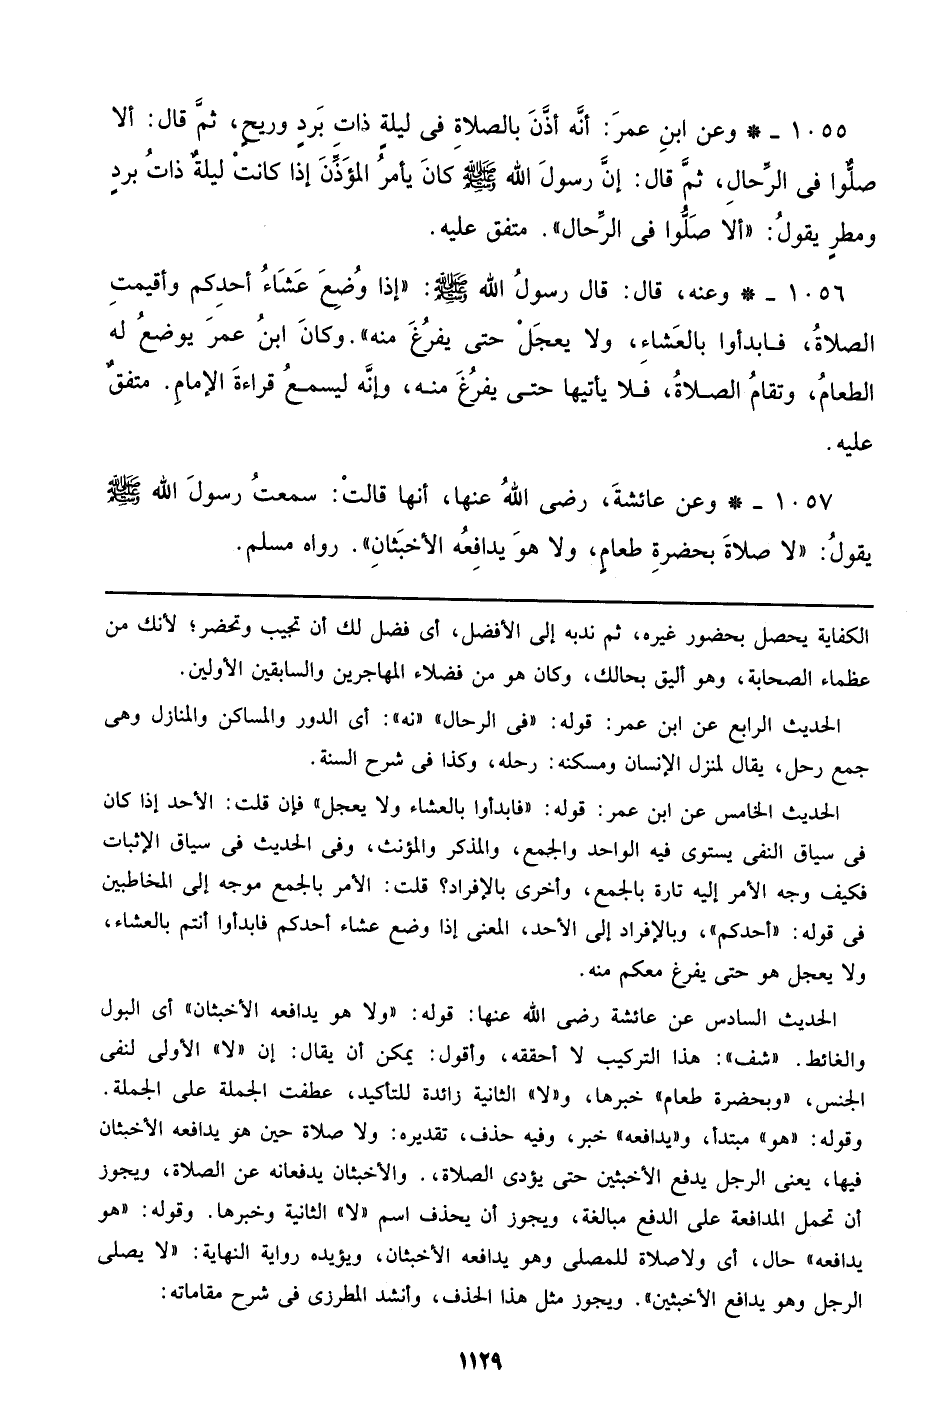 ١٠٥٥ ـ * وعن ابنِ عمرَ: أنَّه أذَّنَ بالصلاةِ فى ليلةٍ ذاتِ بَردٍ وريحٍ، ثمَّ قال: ألا
صلُّوا فى الرِّحالِ، ثمَّ قال: إنَّ رسولَ الله ﷺ كانَ يأمرُ المؤَذِّنَ إذا كانتْ ليلةٌ ذاتُ بردٍ
ومطرٍ يقولُ: «ألا صَلُّوا فى الرِّحال». متفق عليه.
١٠٥٦ ـ * وعنه، قال: قال رسولُ الله ﷺ: «إذا وُضِعَ عَشَاءُ أحدِكم وأقيمتِ
الصلاةُ، فـابدأوا بالعَشاءِ، ولا يعجَلْ حتى يفرُغَ منه». وكانَ ابنُ عمرَ يوضعُ له
الطعامُ، وتقامُ الصـلاةُ، فـلا يأتيها حتـى يفرُغَ منـه، وإنَّه ليسمـعُ قراءةَ الإمامِ. متفقٌ
عليه.
١٠٥٧ ـ * وعن عائشةَ، رضى اللهُ عنها، أنها قالتْ: سمعتُ رسولَ الله ﷺ
يقولُ: «لا صلاةَ بحضرةِ طعامٍ، ولا هوَ يدافِعُه الأخبَثانِ». رواه مسلم.
الكفاية يحصل بحضور غيره، ثم ندبه إلى الأفضل، أى فضل لك أن تجيب وتحضر؛ لأنك من
عظماء الصحابة، وهو أليق بحالك، وكان هو من فضلاء المهاجرين والسابقين الأولين.
الحديث الرابع عن ابن عمر: قوله: «فى الرحال» «نه»: أى الدور والمساكن والمنازل وهى
جمع رحل، يقال لمنزل الإنسان ومسكنه: رحله، وكذا فى شرح السنة.
الحديث الخامس عن ابن عمر: قوله: «فابدأوا بالعشاء ولا يعجل» فإن قلت: الأحد إذا كان
فى سياق النفى يستوى فيه الواحد والجمع، والمذكر والمؤنث، وفى الحديث فى سياق الإثبات
فكيف وجه الأمر إليه تارة بالجمع، وأخرى بالإفراد؟ قلت: الأمر بالجمع موجه إلى المخاطبين
فى قوله: «أحدكم»، وبالإفراد إلى الأحد، المعنى إذا وضع عشاء أحدكم فابدأوا أنتم بالعشاء،
ولا يعجل هو حتى يفرغ معكم منه.
الحديث السادس عن عائشة رضى الله عنها: قوله: «ولا هو يدافعه الأخبثان» أى البول
والغائط. «شف»: هذا التركيب لا أحققه، وأقول: يمكن أن يقال: إن «لا» الأولى لنفى
الجنس، «وبحضرة طعام» خبرها، و«لا» الثانية زائدة للتأكيد، عطفت الجملة على الجملة.
وقوله: «هو» مبتدأ، و«يدافعه» خبر، وفيه حذف، تقديره: ولا صلاة حين هو يدافعه الأخبثان
فيها، يعنى الرجل يدفع الأخبثين حتى يؤدى الصلاة،. والأخبثان يدفعانه عن الصلاة، ويجوز
أن تحمل المدافعة على الدفع مبالغة، ويجوز أن يحذف اسم «لا» الثانية وخبرها. وقوله: «هو
يدافعه» حال، أى ولاصلاة للمصلى وهو يدافعه الأخبثان، ويؤيده رواية النهاية: «لا يصلى
الرجل وهو يدافع الأخبثين». ويجوز مثل هذا الحذف، وأنشد المطرزى فى شرح مقاماته:
١١٢٩